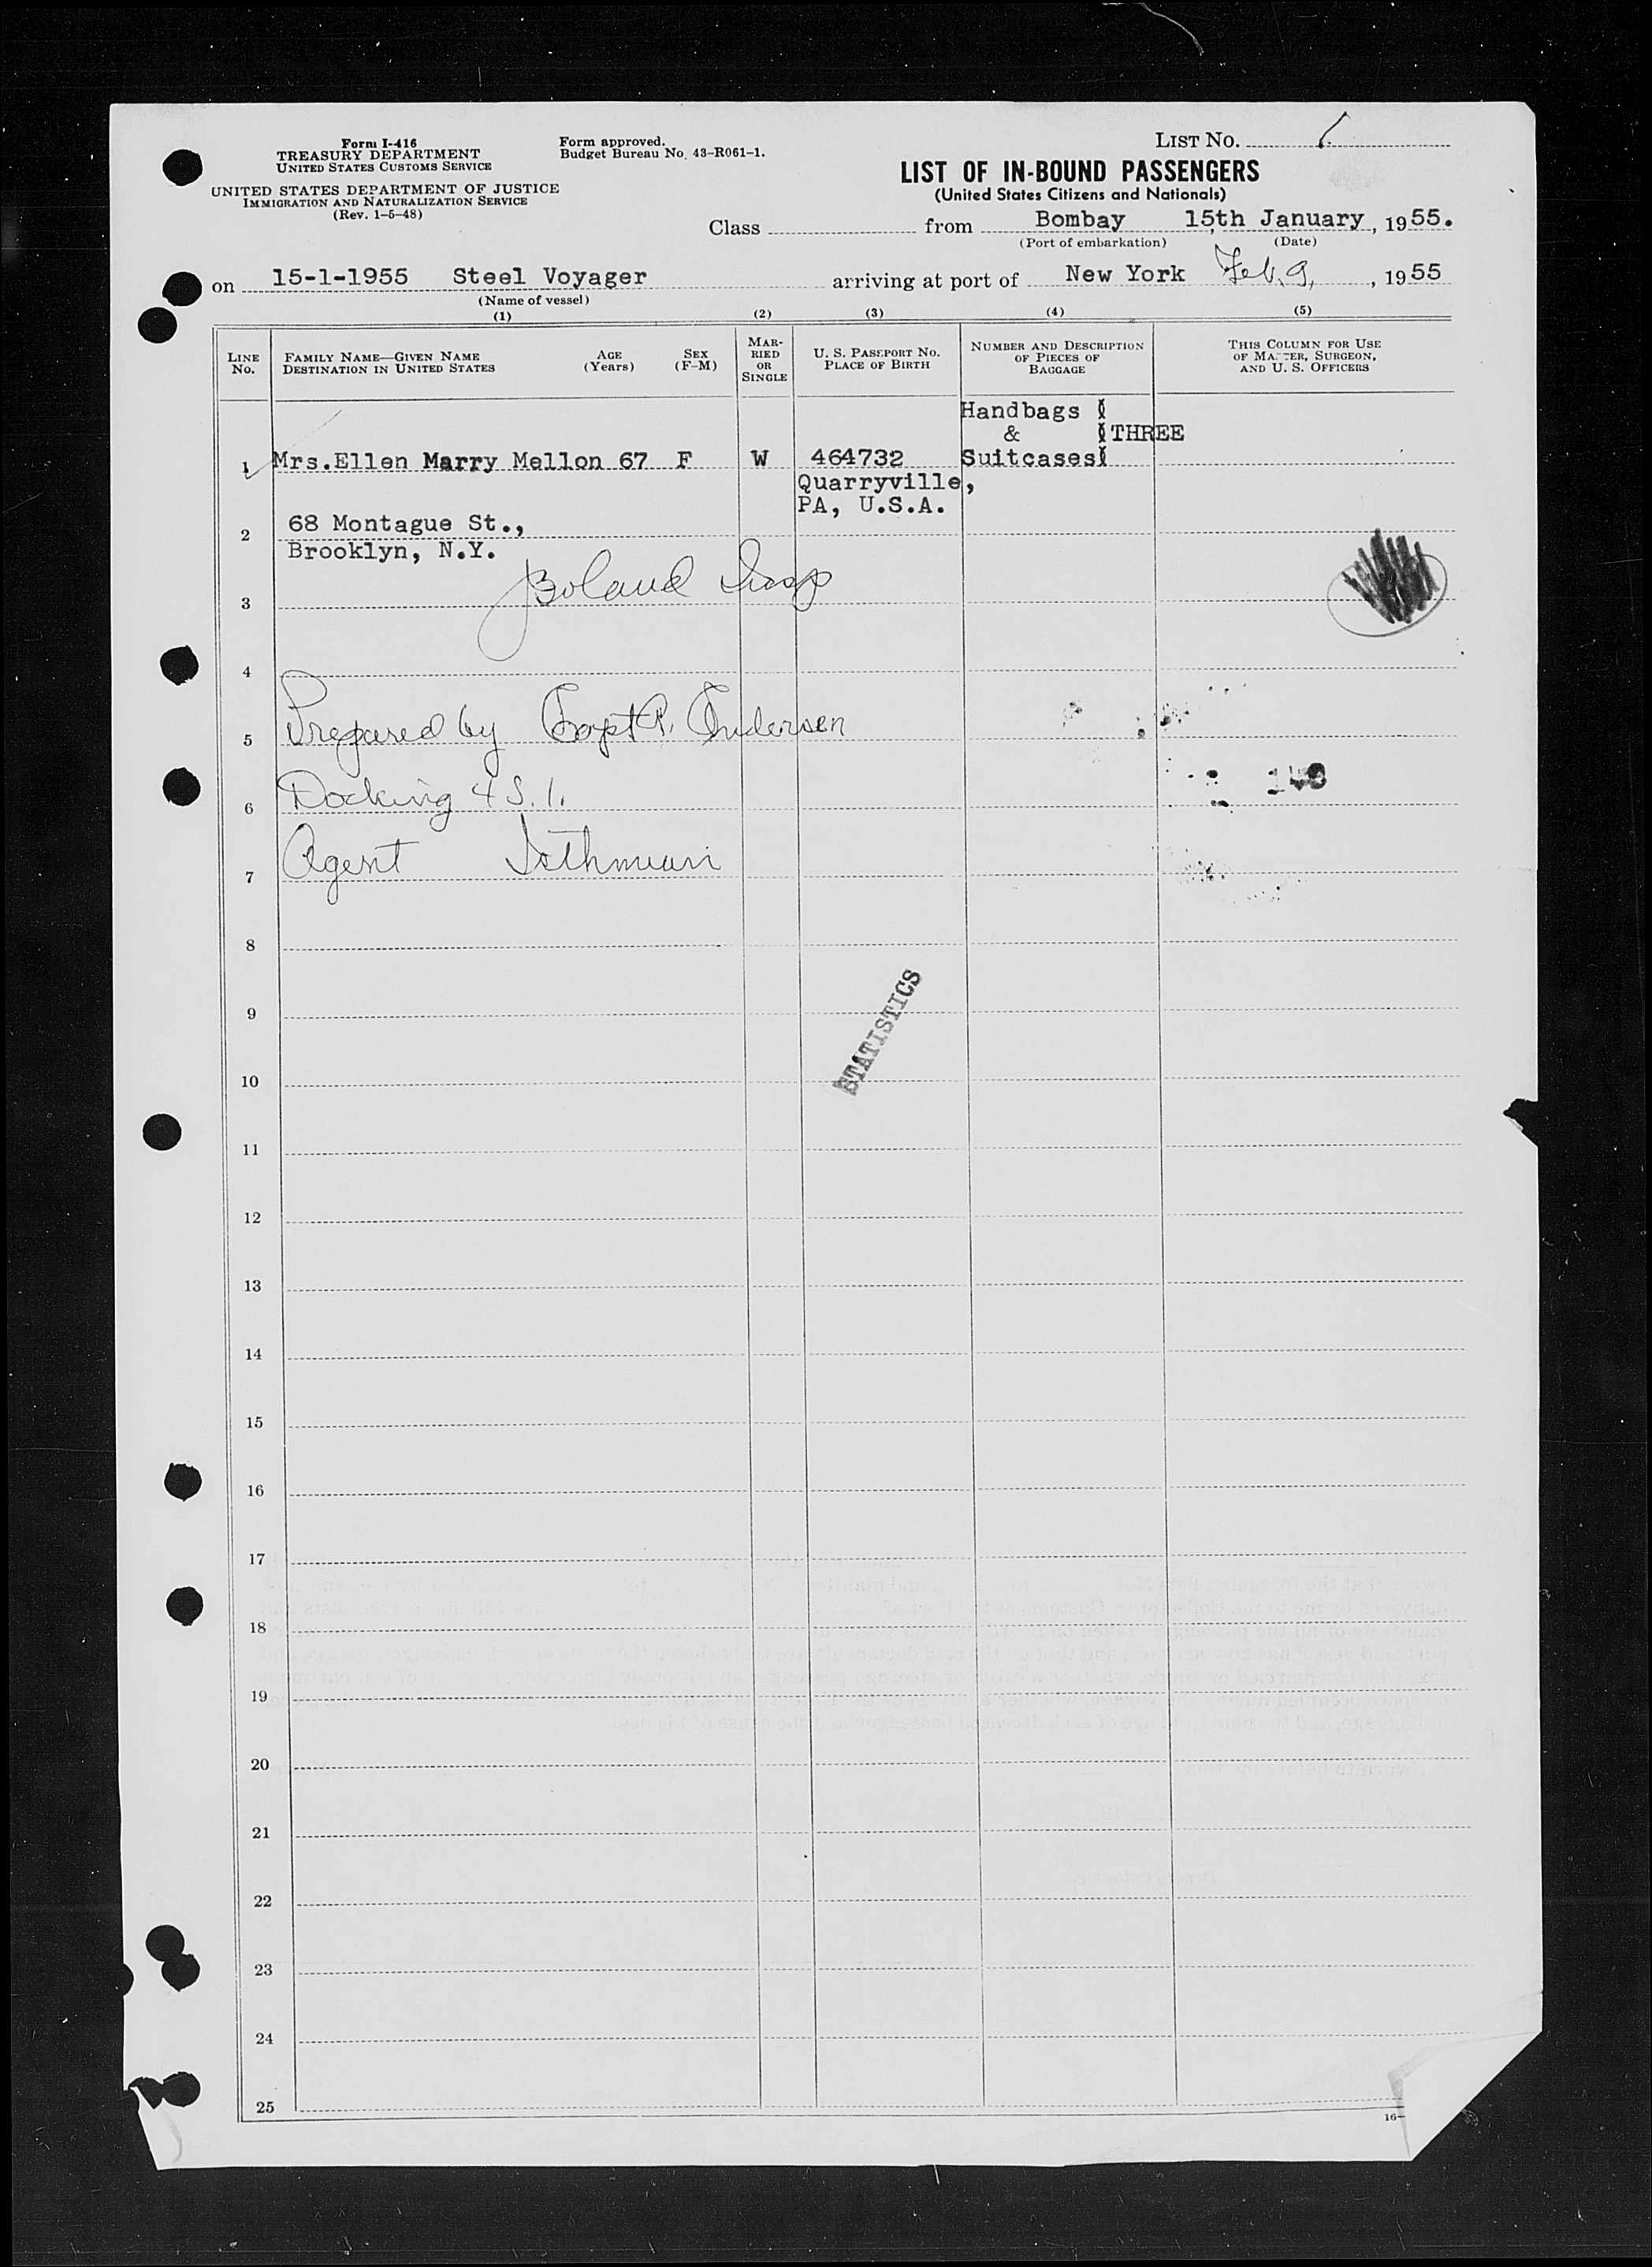 Form I-416
TREASURY DEPARTMENT
UNITED STATES CUSTOMS SERVICE
UNITED STATES DEPARTMENT OF JUSTICE
IMMIGRATION AND NATURALIZATION SERVICE
(Rev. 1-5-48)
Form approved.
Budget Bureau No. 43-R061-1.
LIST NO. 1
LIST OF IN-BOUND PASSENGERS
(United States Citizens and Nationals)
Class from Bombay 15th January, 1955.
(Port of embarkation) (Date)
on 15-1-1955 Steel Voyager arriving at port of New York Feb. 9, , 1955
(Name of vessel)
(1) (2) (3) (4) (5)
LINE NO.
FAMILY NAME—GIVEN NAME
DESTINATION IN UNITED STATES
AGE (Years)
SEX (F-M)
MARRIED OR SINGLE
U. S. PASSPORT NO.
PLACE OF BIRTH
NUMBER AND DESCRIPTION OF PIECES OF BAGGAGE
THIS COLUMN FOR USE OF MASTER, SURGEON, AND U. S. OFFICERS
Handbags
& THREE
1 Mrs.Ellen Marry Mellon 67 F W 464732 Suitcases
Quarryville,
PA, U.S.A.
68 Montague St.,
2
Brooklyn, N.Y.
Boland Insp
3
4
5 Prepared by Capt R. Andersen
6 Docking 4 S.I.
7 Agent Isthmian
8
STATISTICS
9
10
11
12
13
14
15
16
17
18
19
20
21
22
23
24
25
16-